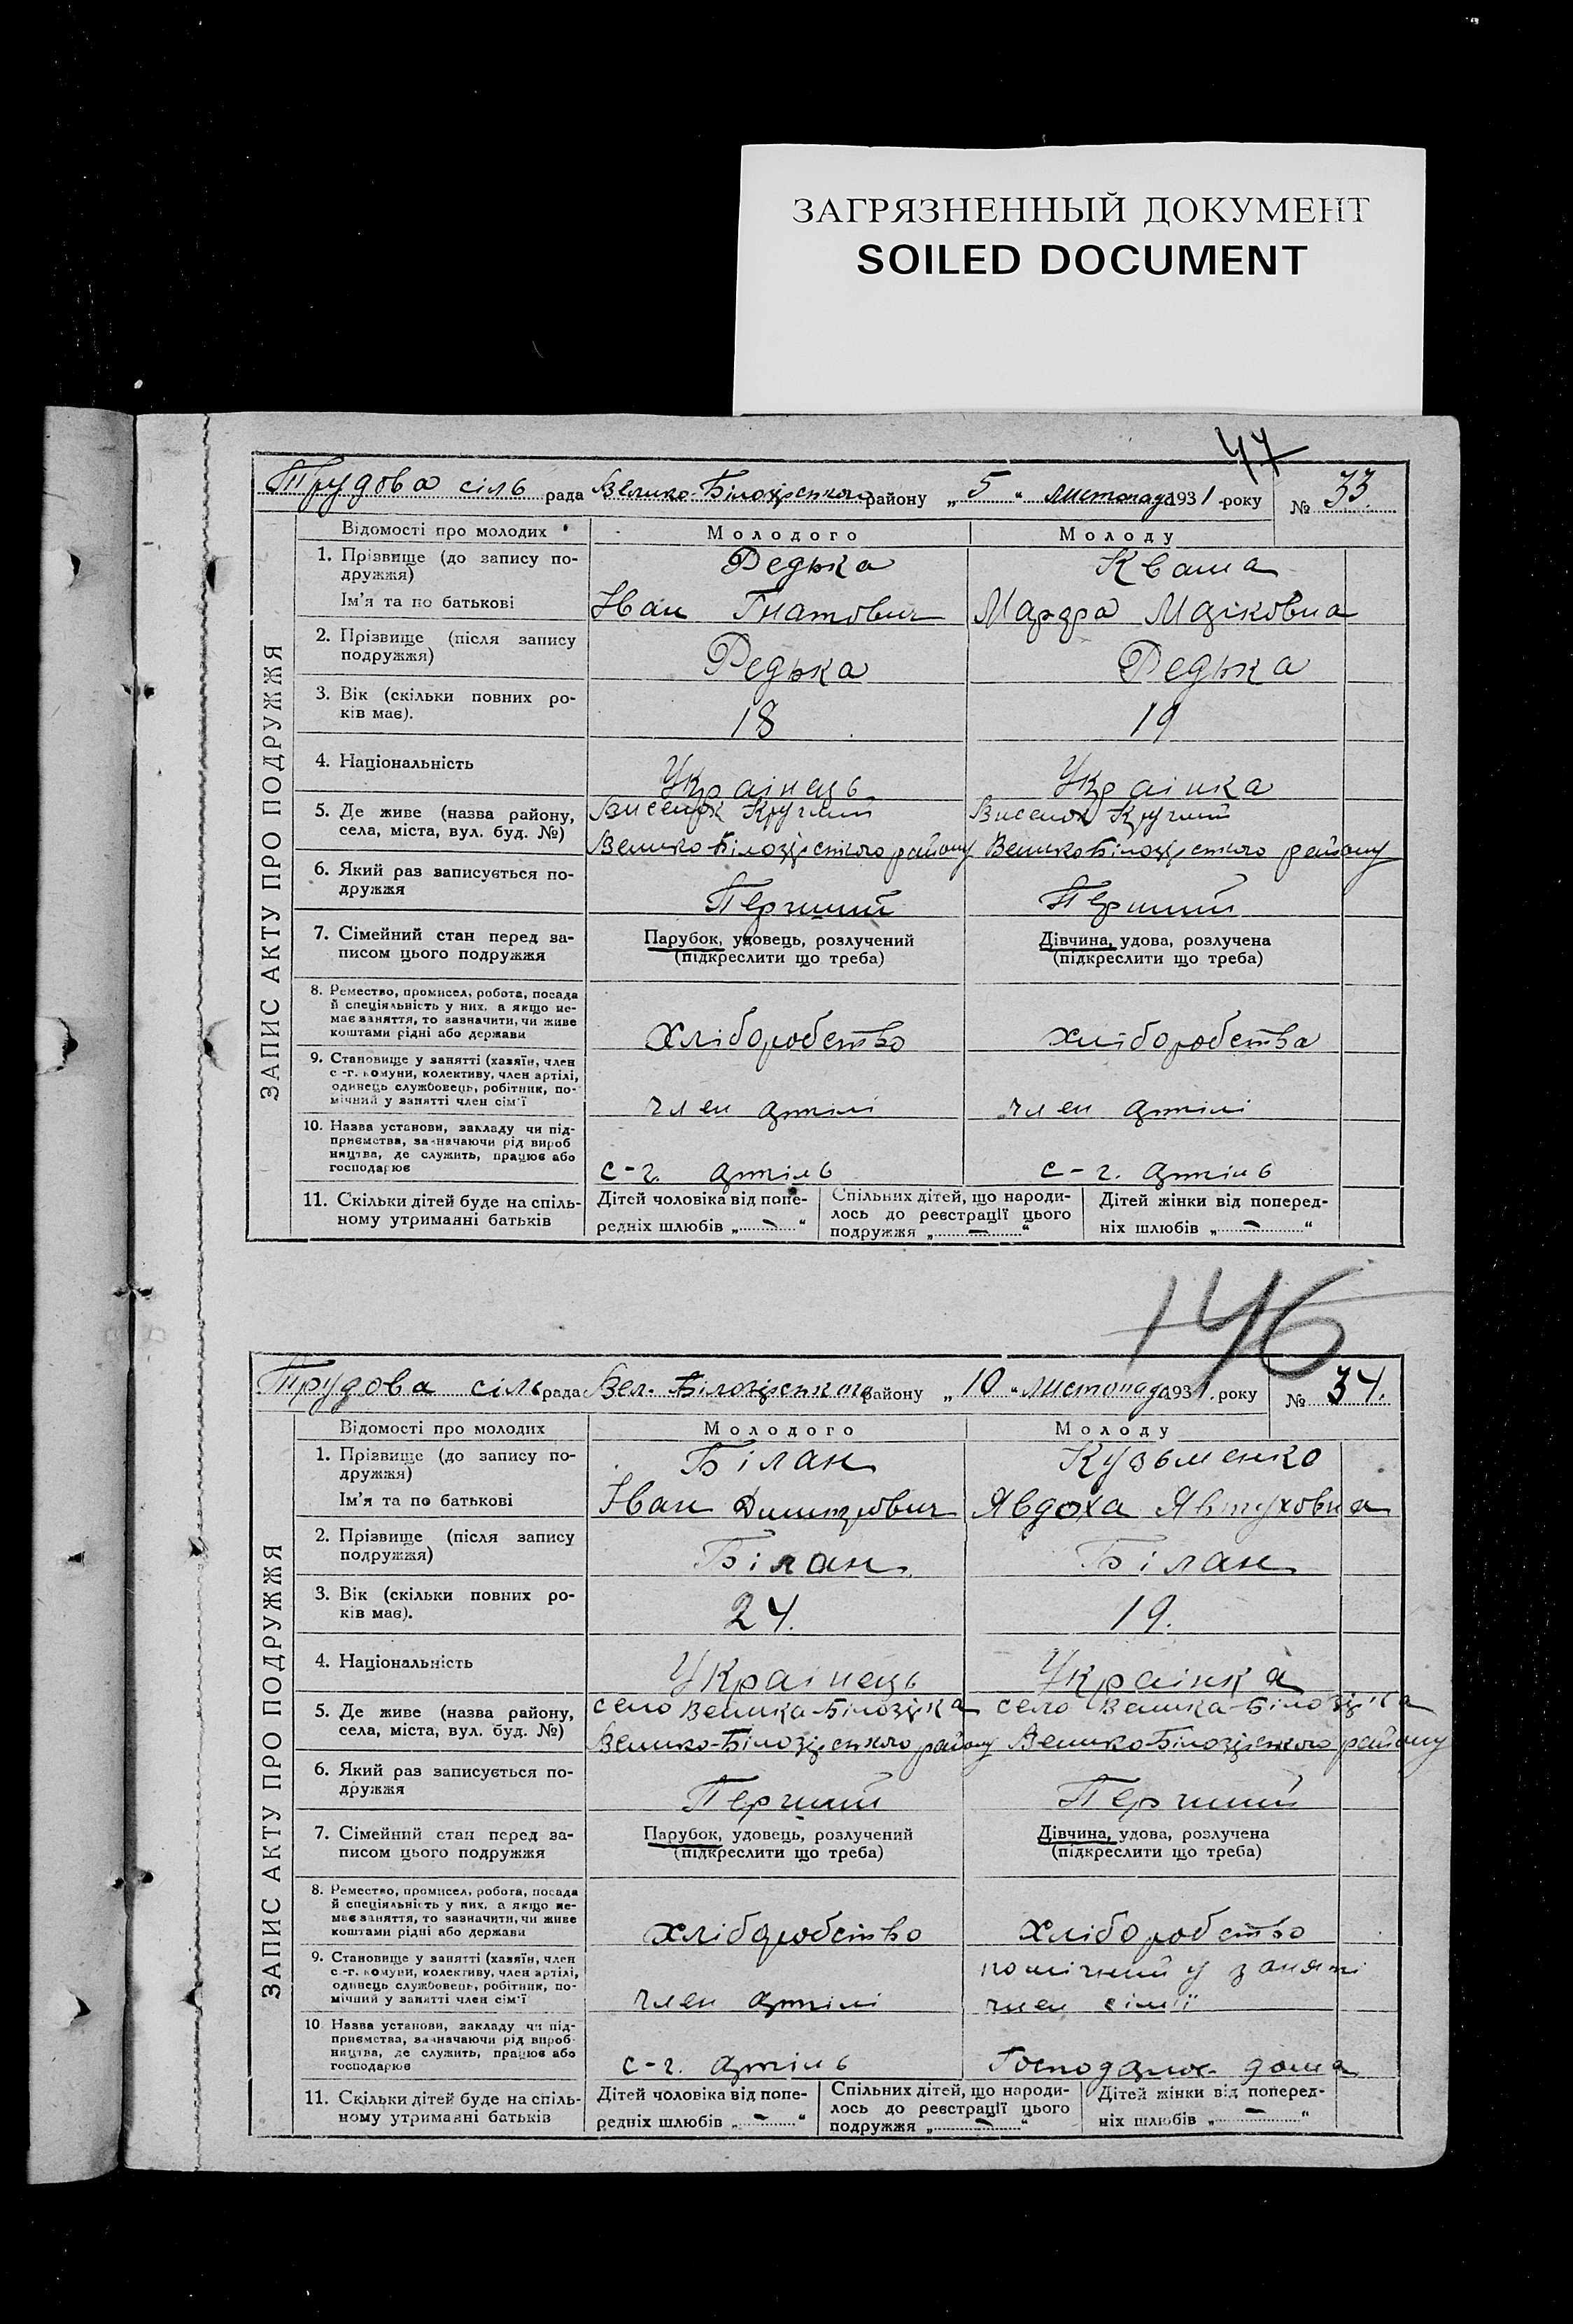 ЗАГРЯЗНЕННЫЙ ДОКУМЕНТ
SOILED DOCUMENT
47
Трудова сіль рада Велико-Білозірського району „5“ листопада 1931 року № 33
ЗАПИС АКТУ ПРО ПОДРУЖЖЯ
Відомості про молодих Молодого Молоду
1. Прізвище (до запису по-
дружжя) Редька Кваша
Ім'я та по батькові Іван Гнатович
2. Прізвище (після запису
подружжя) Редька Редька
3. Вік (скільки повних ро-
ків має). 18 19
4. Національність Українець Українка
5. Де живе (назва району,
села, міста, вул. буд. №) Виселок Виселок
Велико-Білозірського району Велико Білозірського району
6. Який раз записується по-
дружжя Перший Перший
7. Сімейний стан перед за-
писом цього подружжя Парубок, удовець, розлучений Дівчина, удова, розлучена
(підкреслити що треба) (підкреслити що треба)
8. Ремество, промисел, робота, посада
й спеціяльність у них, а якщо не-
має заняття, то зазначити, чи живе
коштами рідні або держави Хліборобство хліборобства
9. Становище у занятті (хазяїн, член
с.-г. комуни, колективу, член артілі,
одинець службовець, робітник, по-
мічний у занятті член сім'ї член артілі член артілі
10. Назва установи, закладу чи під-
приємства, зазначаючи рід вироб
ництва, де служить, працює або
господарює с-г. артіль с-г. артіль
11. Скільки дітей буде на спіль-
ному утриманні батьків Дітей чоловіка від попе-
редніх шлюбів „—“ Спільних дітей, що народи-
лось до реєстрації цього
подружжя „—“ Дітей жінки від поперед-
ніх шлюбів „—“
146
Трудова сіль рада Вел. Білозірського району „10“ листопада 1931 року № 34.
ЗАПИС АКТУ ПРО ПОДРУЖЖЯ
Відомості про молодих Молодого Молоду
1. Прізвище (до запису по-
дружжя) Білан Кузьменко
Ім'я та по батькові Іван Димитрович Явдоха Явтуховна
2. Прізвище (після запису
подружжя) Білан Білан
3. Вік (скільки повних ро-
ків має). 24. 19.
4. Національність Українець Українка
5. Де живе (назва району,
села, міста, вул. буд. №) село Велика-Білозірка село Велика-Білозірка
Велико-Білозірського району Велико-Білозірського району
6. Який раз записується по-
дружжя Перший Перший
7. Сімейний стан перед за-
писом цього подружжя Парубок, удовець, розлучений Дівчина, удова, розлучена
(підкреслити що треба) (підкреслити що треба)
8. Ремество, промисел, робота, посада
й спеціяльність у них, а якщо не-
має заняття, то зазначити, чи живе
коштами рідні або держави хліборобство хліборобство
9. Становище у занятті (хазяїн, член
с.-г. комуни, колективу, член артілі,
одинець службовець, робітник, по-
мічний у занятті член сім'ї член артілі помічний у заняті
член сімії
10 Назва установи, закладу чи під-
приємства, зазначаючи рід вироб-
ництва, де служить, працює або
господарює с-г. артіль Господарює дома
11. Скільки дітей буде на спіль-
ному утриманні батьків Дітей чоловіка від попе-
редніх шлюбів „—“ Спільних дітей, що народи-
лось до реєстрації цього
подружжя „—“ Дітей жінки від поперед-
ніх шлюбів „—“